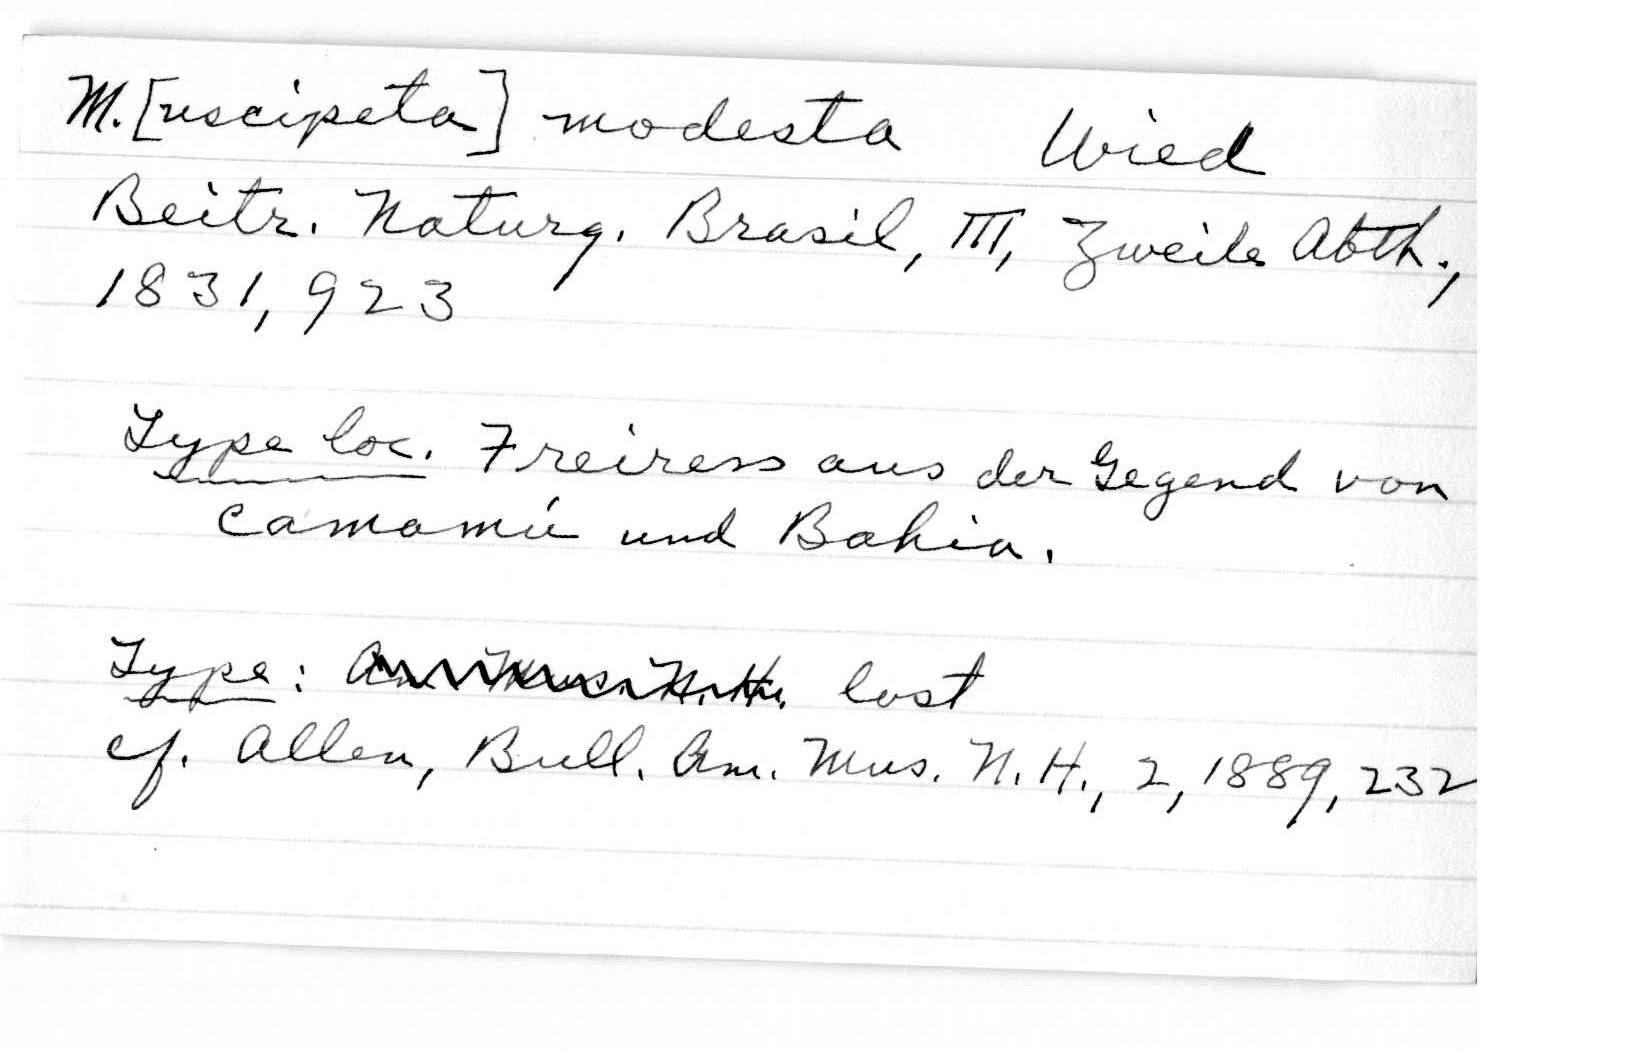 M.[uscipeta] modesta Wied
Beitr. Naturg. Brasil, III, Zweite Abth.,
1831, 923
Type loc. Freiress aus der Gegend von
Camamú und Bahia.
Type: Am. Mus. N. H. lost
cf. Allen, Bull. Am. Mus. N. H., 2, 1889, 232